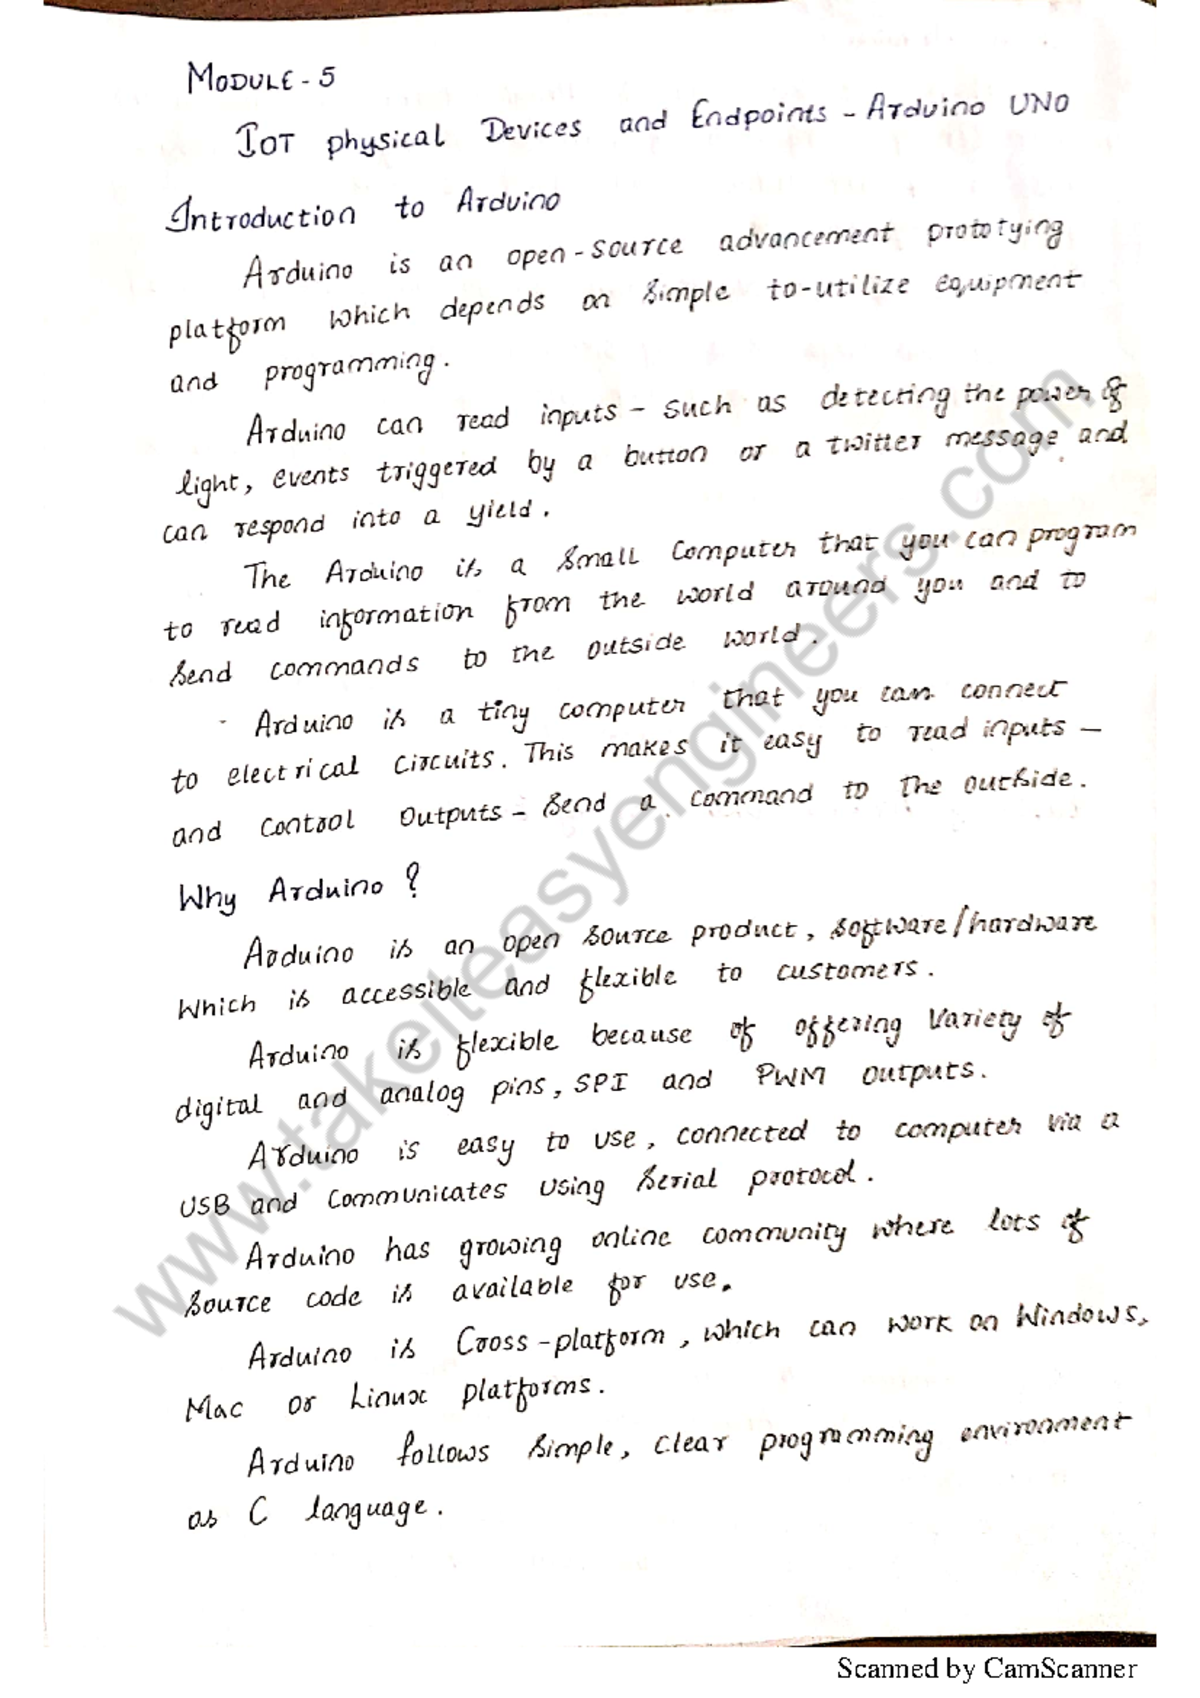 MODULE - 5
IOT physical Devices and Endpoints - Arduino UNO
Introduction to Arduino
Arduino is an open-source advancement prototying
platform which depends on simple to-utilize equipment
and programming.
Arduino can read inputs - such as detecting the power of
light, events triggered by a button or a twitter message and
can respond into a yield.
The Arduino is a small computer that you can program
to read information from the world around you and to
send commands to the outside world.
Arduino is a tiny computer that you can connect
to electrical circuits. This makes it easy to read inputs -
and control outputs - send a command to the outside.
Why Arduino ?
Arduino is an open source product, software/hardware
which is accessible and flexible to customers.
Arduino is flexible because of offering variety of
digital and analog pins, SPI and PWM outputs.
Arduino is easy to use, connected to computer via a
USB and communicates using serial protocol.
Arduino has growing online community where lots of
source code is available for use.
Arduino is cross-platform, which can work on Windows,
Mac or Linux platforms.
Arduino follows simple, clear programming environment
as C language.
www.takeiteasyengineers.com
Scanned by CamScanner